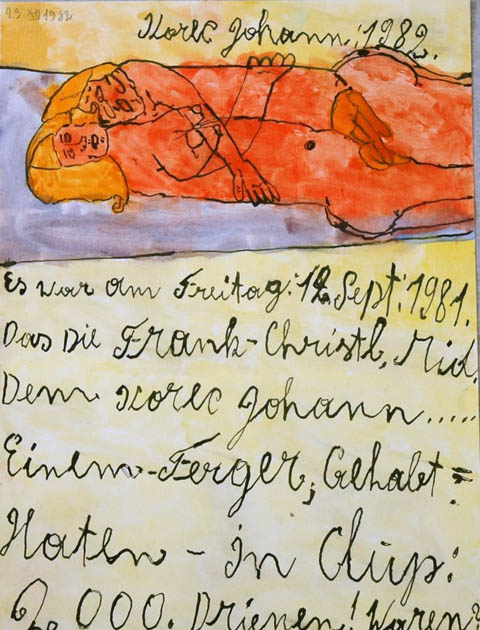 23 XII 1982
Korec Johann: 1982.
Es war am Freitag: 12. Sept: 1981.
Das Die Frank-Christl, Mid.
Dem Korec Johann.....
Einem-Ferger, Gehabt =
Haten - in Clup:
000. Drienen! Waren?